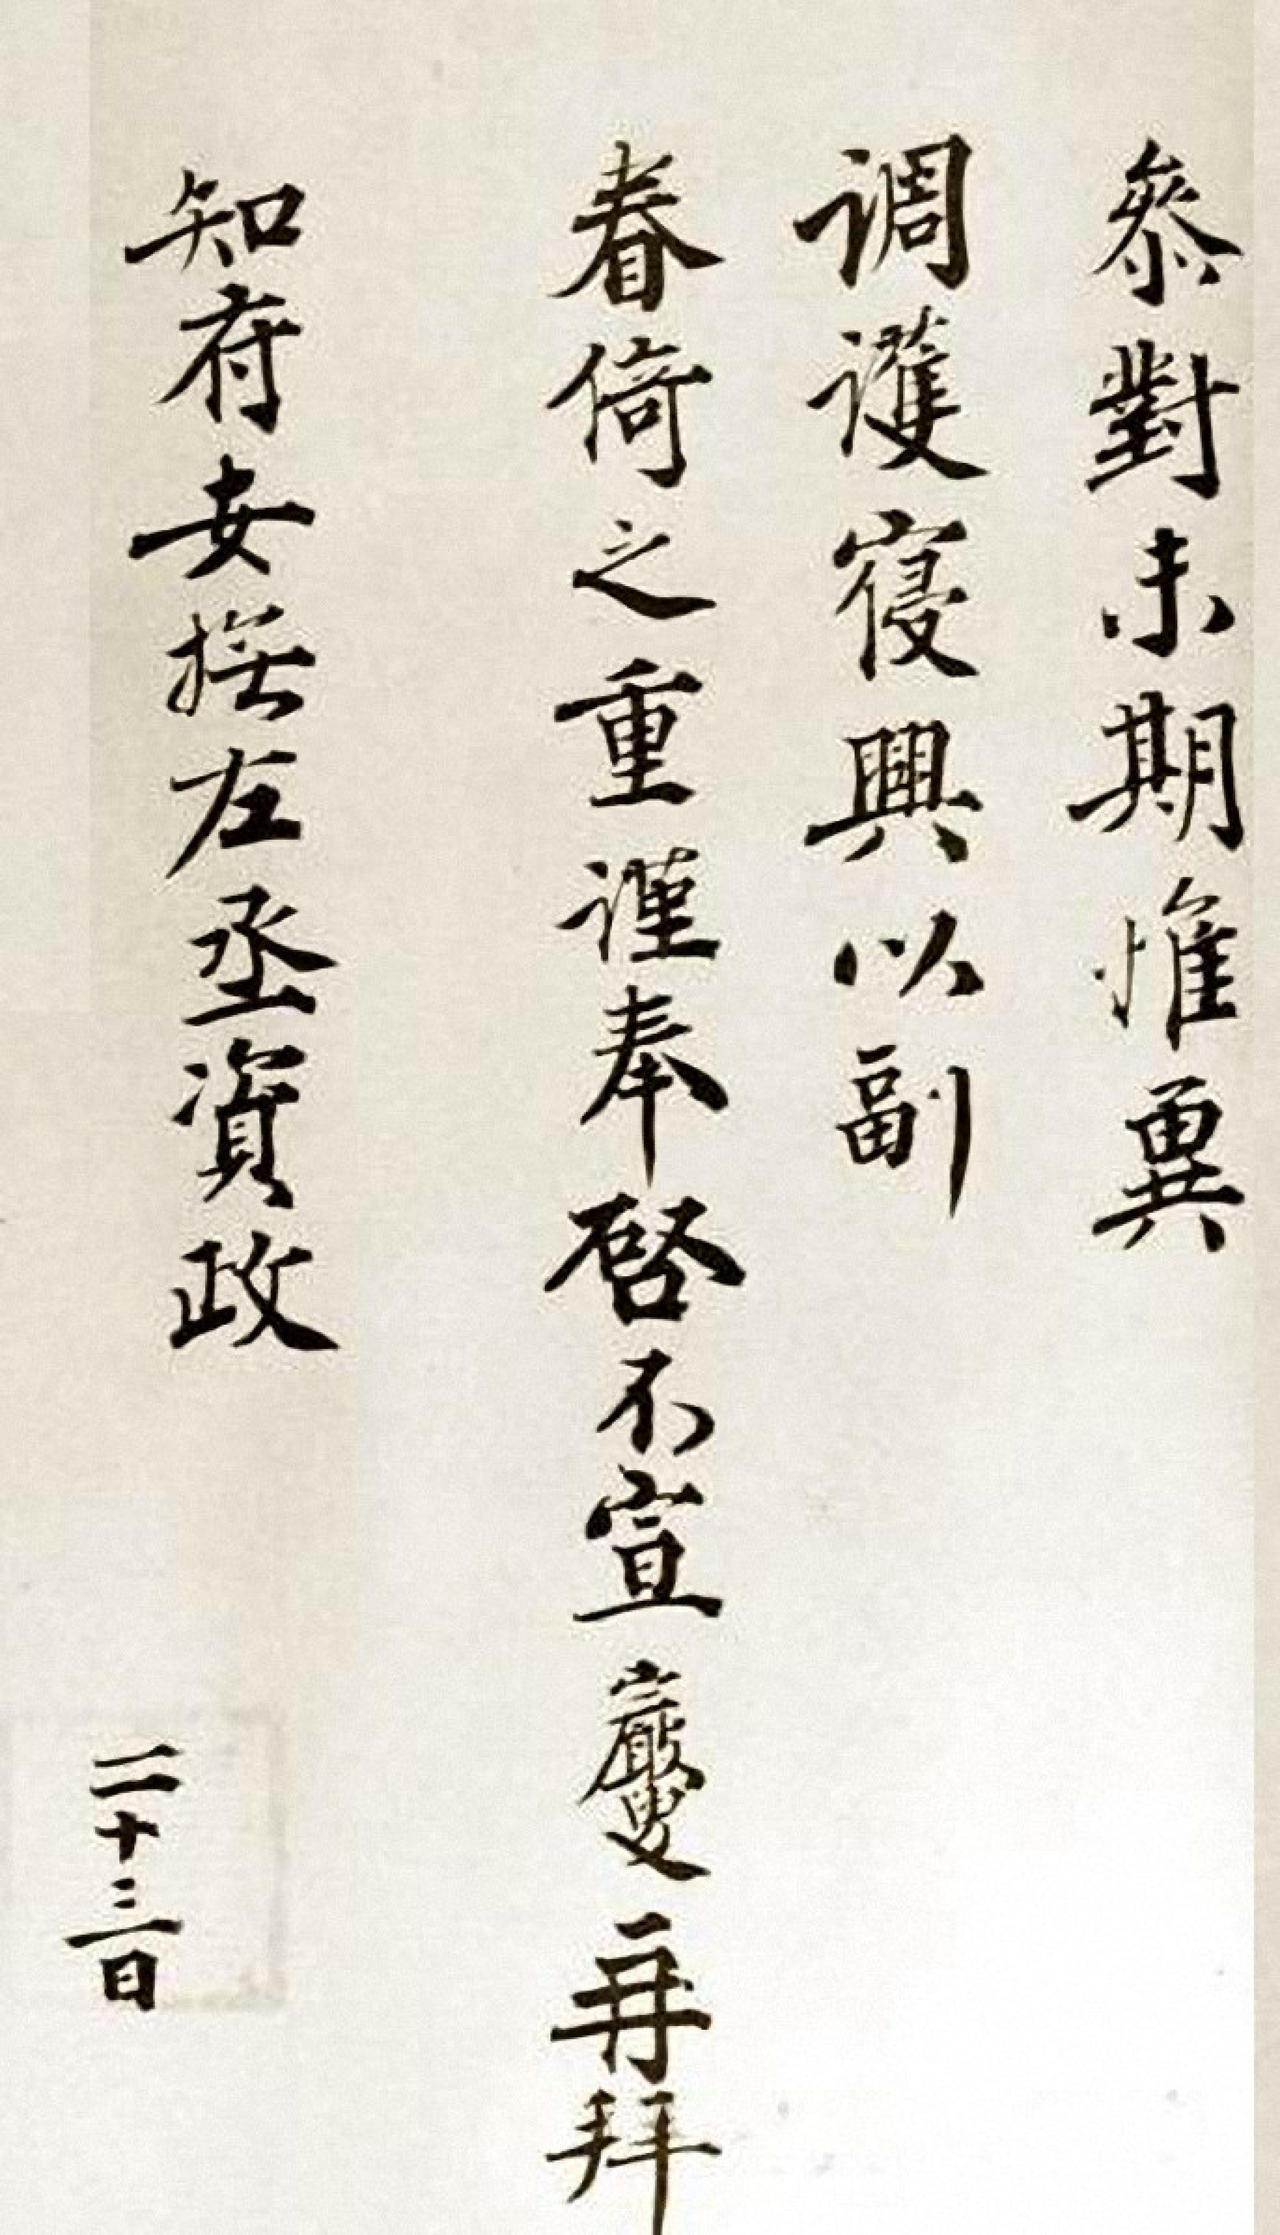 參對未期惟冀
調護寢興以副
眷倚之重謹奉啓不宣 再拜
知府安撫左丞資政
二十三日